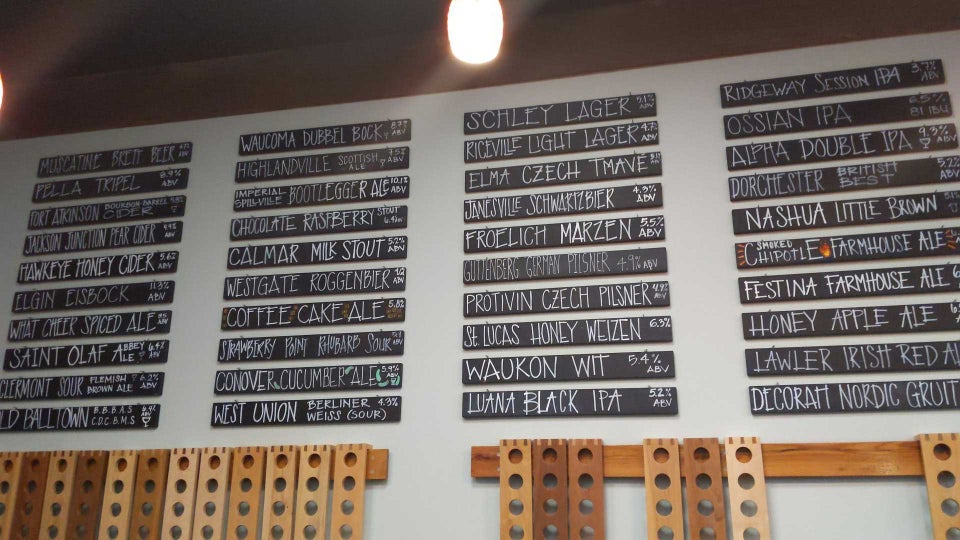 MUSCATINE BRETT BEER ABV
PELLA TRIPEL 8.9% ABV
FORT ATKINSON BOURBON BARREL CIDER
JACKSON JUNCTION PEAR CIDER ABV
HAWKEYE HONEY CIDER 5.6% ABV
ELGIN EISBOCK 11.3% ABV
WHAT CHEER SPICED ALE ABV
SAINT OLAF ABBEY ALE 6.4% ABV
CLERMONT SOUR FLEMISH BROWN ALE 6.2% ABV
LD BALLTOWN B.B.B.A.S C.D.C.B.M.S 6.9% ABV
WAUCOMA DUBBEL BOCK 8.7% ABV
HIGHLANDVILLE SCOTTISH ALE 7.5% ABV
IMPERIAL SPILLVILLE BOOTLEGGER ALE 10.1% ABV
CHOCOLATE RASPBERRY STOUT
CALMAR MILK STOUT 5.2% ABV
WESTGATE ROGGENBIER ABV
COFFEE CAKE ALE 5.8% ABV
STRAWBERRY POINT RHUBARB SOUR ABV
CONOVER CUCUMBER ALE 5.9% ABV
WEST UNION BERLINER WEISS (SOUR) 4.3%
SCHLEY LAGER 5.1% ABV
RICEVILLE LIGHT LAGER 4.2% ABV
ELMA CZECH TMAVE ABV
JANESVILLE SCHWARTZBIER 4.3% ABV
FROELICH MARZEN 5.5% ABV
GUTTENBERG GERMAN PILSNER 4.9% ABV
PROTIVIN CZECH PILSNER 4.9% ABV
ST. LUCAS HONEY WEIZEN 6.3%
WAUKON WIT 5.4% ABV
LUANA BLACK IPA 5.2% ABV
RIDGEWAY SESSION IPA 3.7% ABV
OSSIAN IPA 6.5% 81 IBU
ALPHA DOUBLE IPA 9.3% ABV
DORCHESTER BRITISH BEST 5.2% ABV
NASHUA LITTLE BROWN
SMOKED CHIPOTLE FARMHOUSE ALE
FESTINA FARMHOUSE ALE
HONEY APPLE ALE
LAWLER IRISH RED AL
DECORAH NORDIC GRUIT